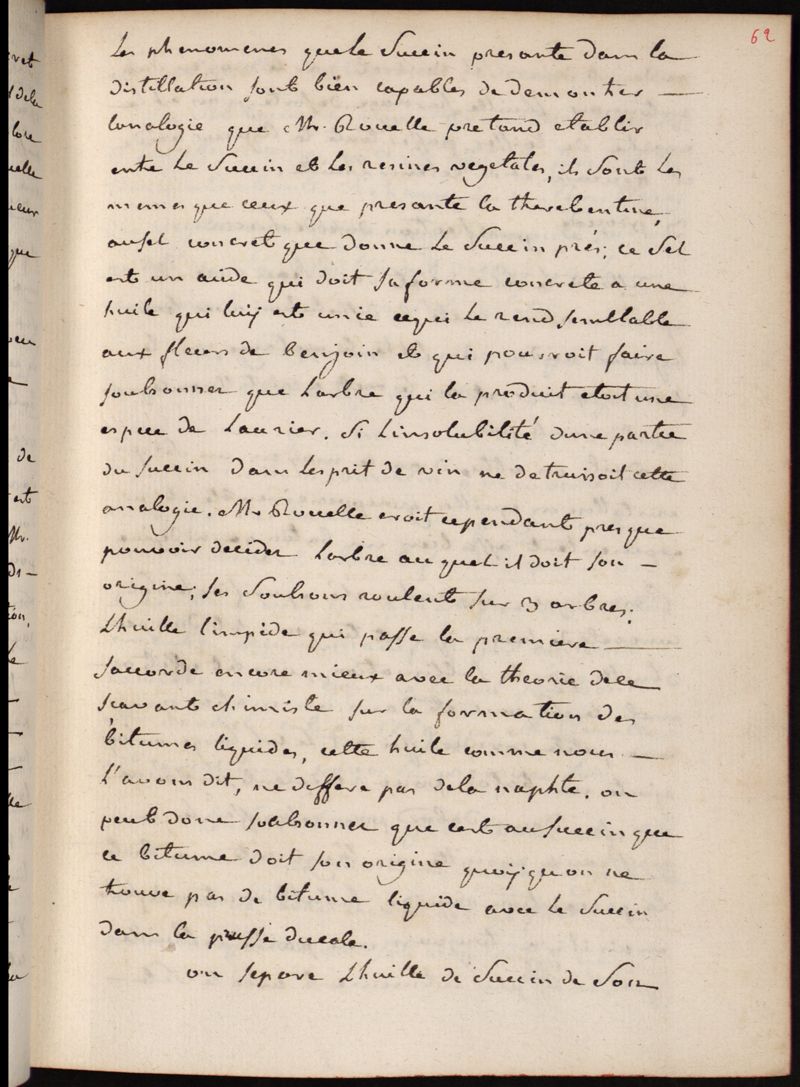 62
Les phenomenes que le Succin presente dans la
distillation sont bien capables de demontrer —
lanalogie que Mr. Rouelle pretend etablir
entre Le Succin et Les resines vegetales, ils sont Les
memes que ceux que presente la therebentine,
au sel concret que donne Le Succin prés; ce Sel
est un acide qui doit sa forme concrete a une
huile qui luy est unie ce qui Le rend semblable
aux fleurs de benjoin et qui pourroit faire
soubsonner que Larbre qui la produit etoit une
espece de Laurier. Si Linsolubilité dune partie
du Succin dans Lesprit de vin ne detruisoit cette
analogie. Mr Rouelle croit cependant presque
pouvoir decider Larbre auquel il doit son —
origine; ses Soubsons roulent sur 3 arbres;
Lhuille limpide qui passe la premiere —
saccorde encore mieux avec la theorie de ce
scavant chimiste sur la formation des
bitumes liquides, cette huile comme nous —
L'avons dit, ne differe pas de la naphte. on
peut donc soubsonner que cest au Succin que
ce bitume doit son origine quoyqu on ne
trouve pas de bitume liquide avec Le Succin
dans la prusse ducale.
on separe Lhuille de Succin de Son